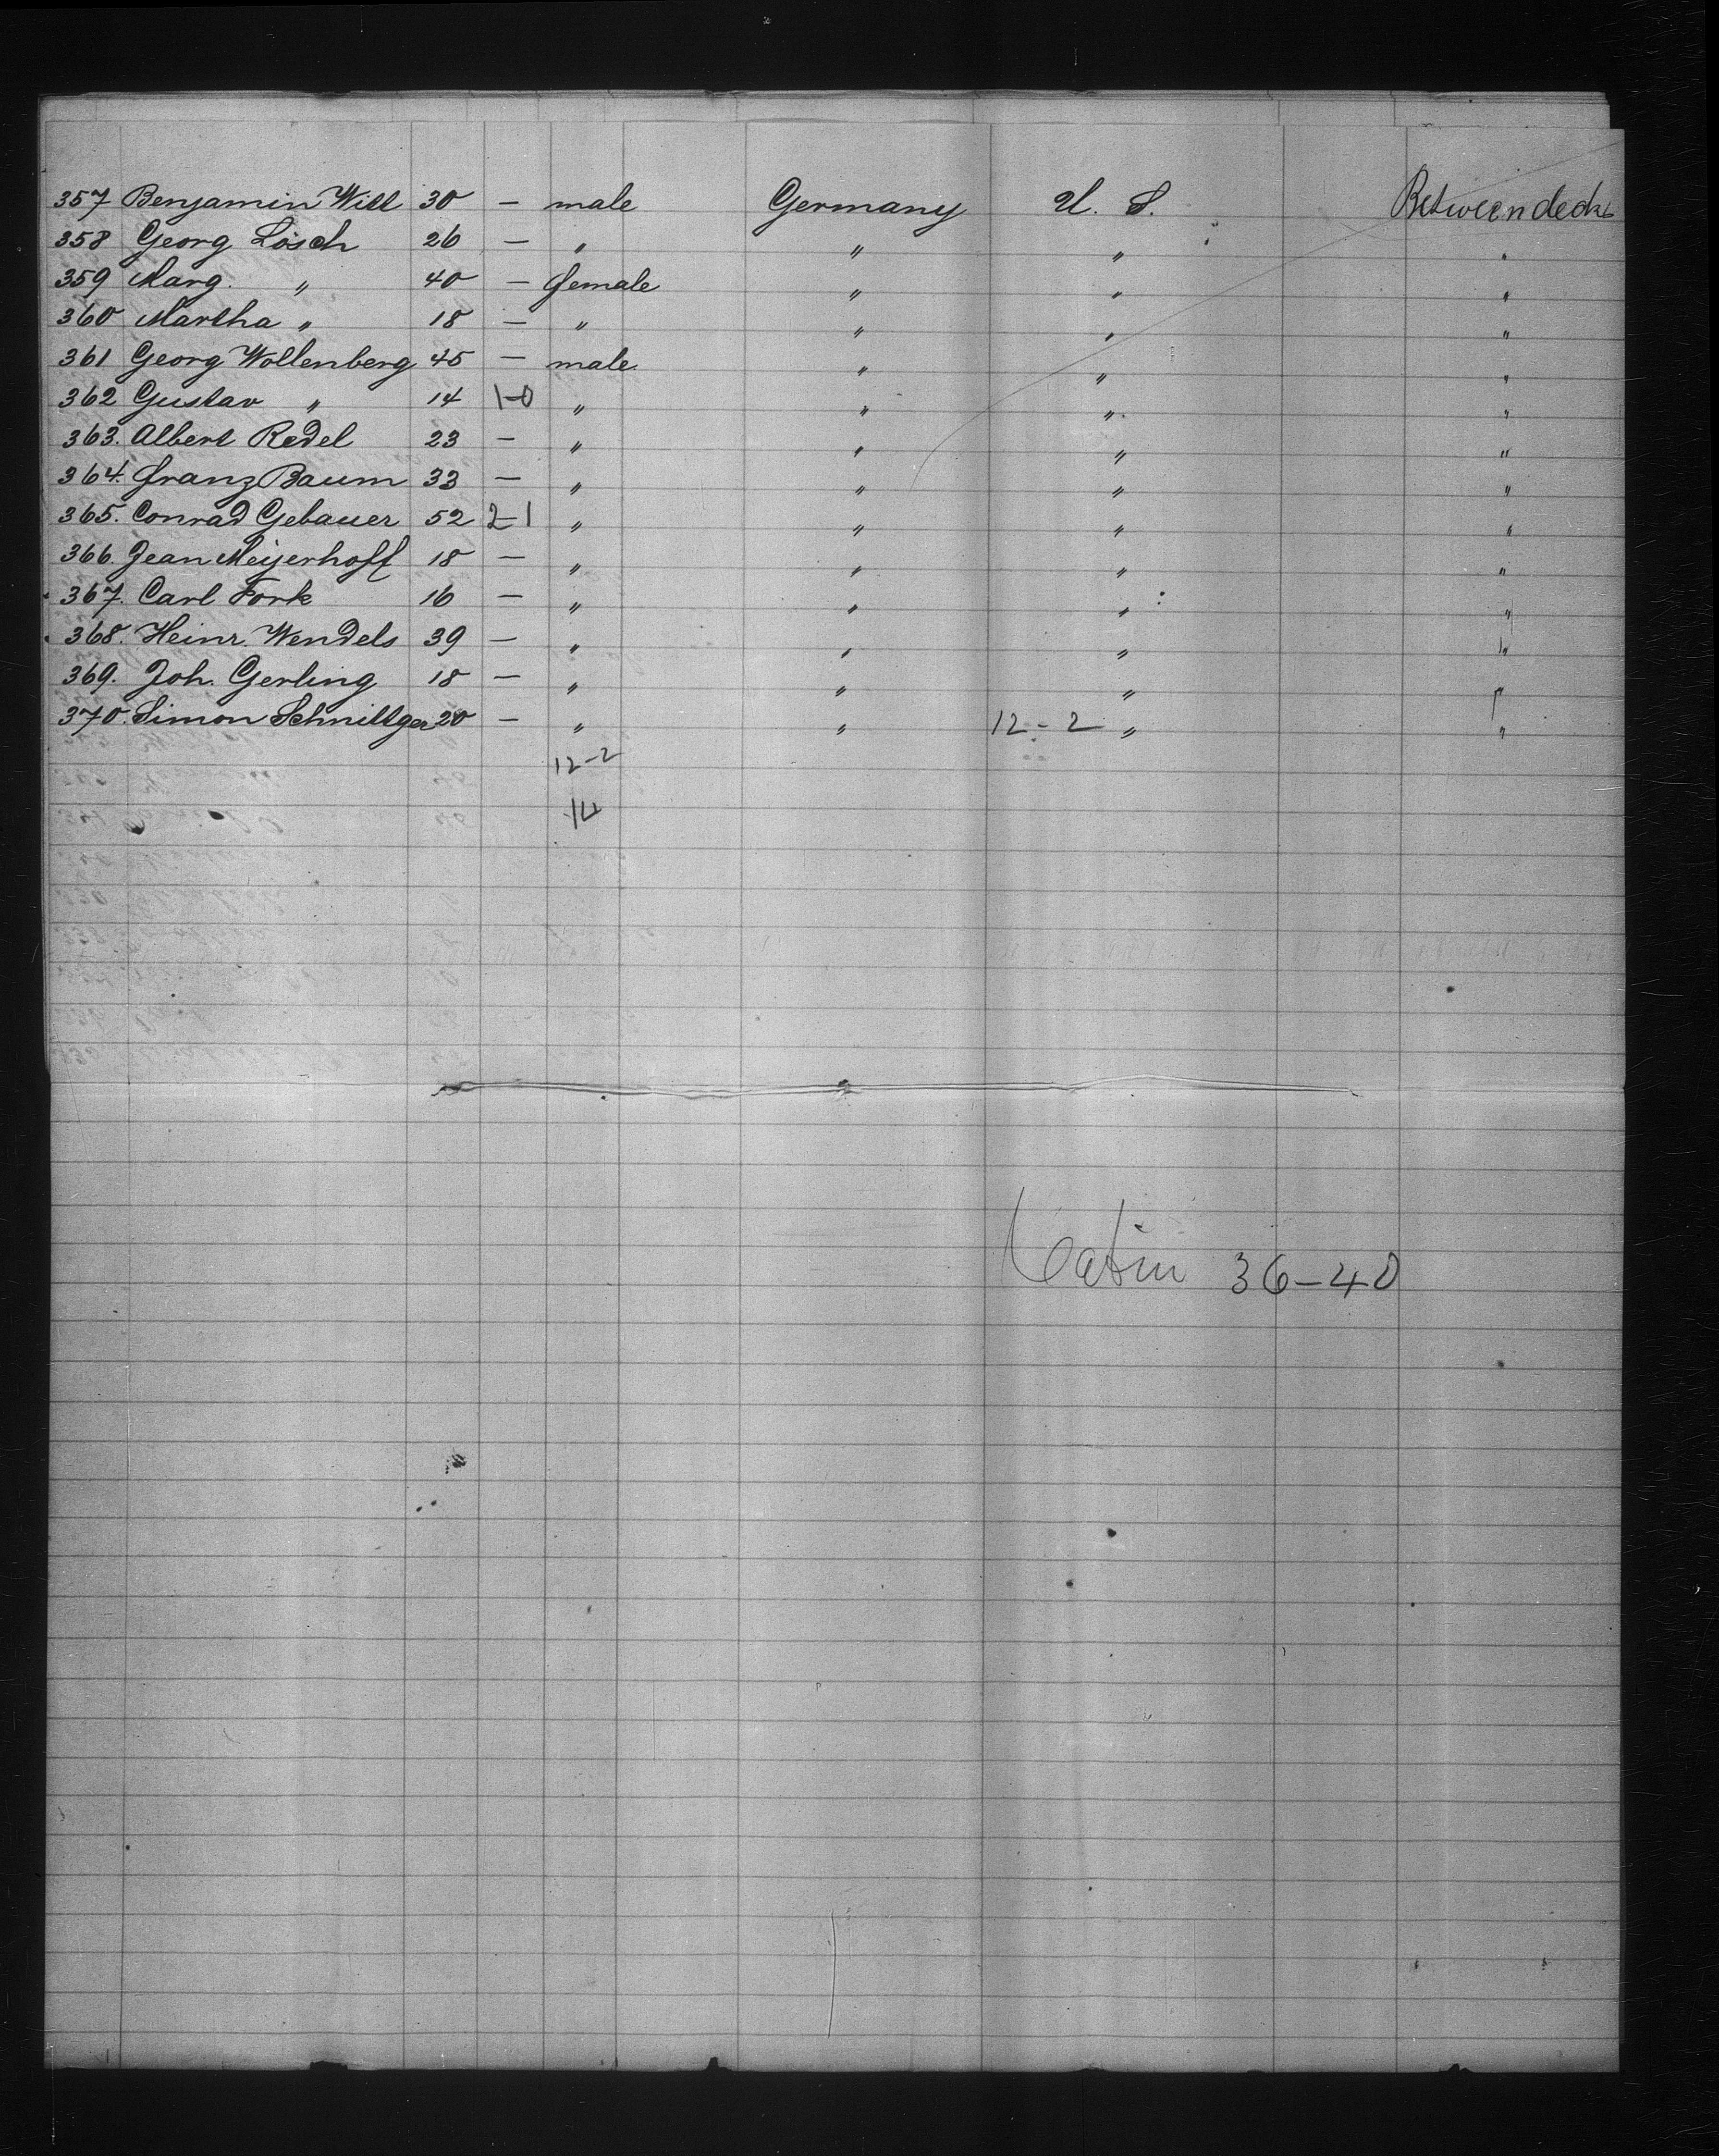 357 Benjamin Witt 30 — male Germany U. S. Betweendecks
358 Georg Lösch 26 — " " " "
359 Marg. " 40 — female " " "
360 Martha " 18 — " " " "
361 Georg Wollenberg 45 — male " " "
362 Gustav " 14 1-0 " " " "
363. Albert Redel 23 — " " " "
364. Franz Baum 33 — " " " "
365. Conrad Gebauer 52 2-1 " " " "
366. Jean Meijerhoff 18 — " " " "
367. Carl Fork 16 — " " " "
368. Heinr. Wendels 39 — " " " "
369. Joh. Gerling 18 — " " " "
370. Simon Schnittger 20 — " " 12-2 " "
12-2
14
Cabin 36-40